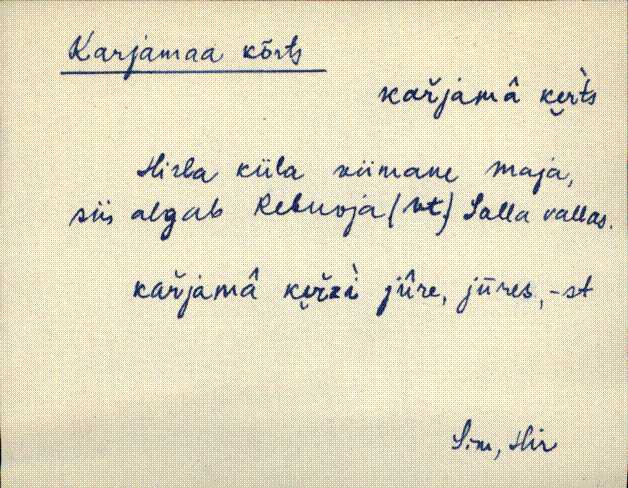 Karjamaa kõrts
kařjamâ ke̮r̀ts
Hirla küla viimane maja,
siis algab Rebuoja (vt.) Salla vallas.
kařjamâ ke̮řzì jûre, jūres, -st
Sim, Hir